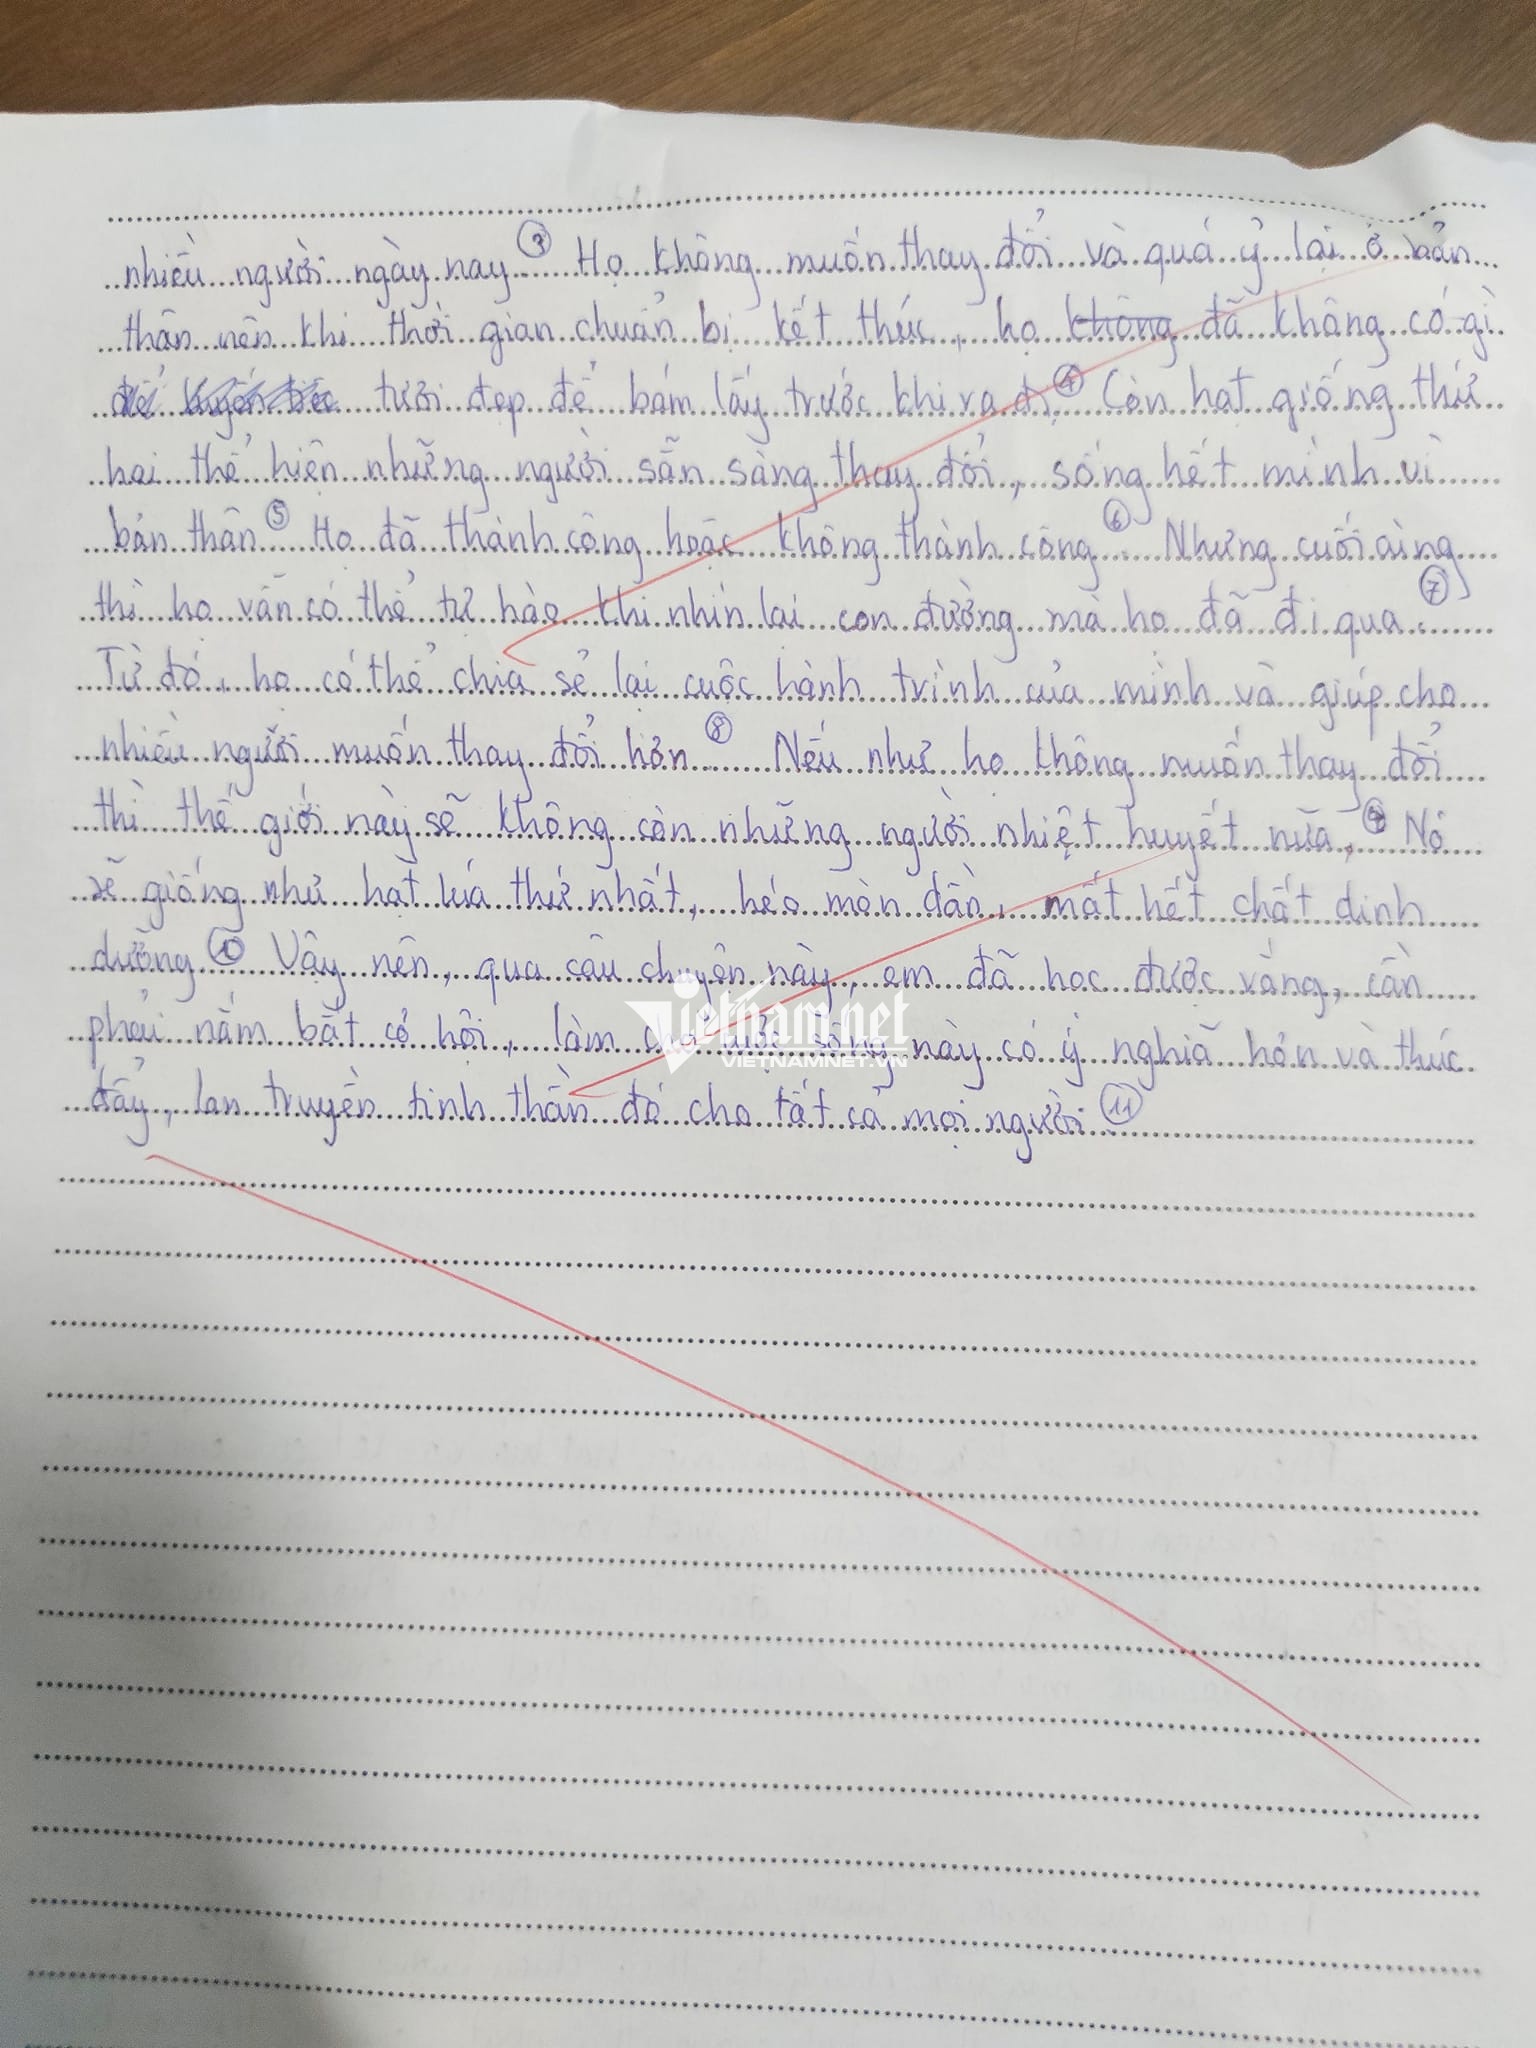 nhiều người ngày nay. ③ Họ không muốn thay đổi và quá ỷ lại ở bản
thân nên khi thời gian chuẩn bị kết thúc, họ không đã không có gì
để tươi đẹp để bám lấy trước khi ra đi. ④ Còn hạt giống thứ
hai thể hiện những người sẵn sàng thay đổi, sống hết mình vì
bản thân ⑤. Họ đã thành công hoặc không thành công ⑥. Nhưng cuối cùng
thì họ vẫn có thể tự hào khi nhìn lại con đường mà họ đã đi qua. ⑦
Từ đó, họ có thể chia sẻ lại cuộc hành trình của mình và giúp cho
nhiều người muốn thay đổi hơn ⑧. Nếu như họ không muốn thay đổi
thì thế giới này sẽ không còn những người nhiệt huyết nữa. ⑨ Nó
sẽ giống như hạt lúa thứ nhất, héo mòn dần, mất hết chất dinh
dưỡng ⑩. Vậy nên, qua câu chuyện này, em đã học được rằng, cần
phải nắm bắt cơ hội, làm cho cuộc sống này có ý nghĩa hơn và thúc
vietnam.net
VIETNAMNET.VN
đẩy, lan truyền tinh thần đó cho tất cả mọi người ⑪.